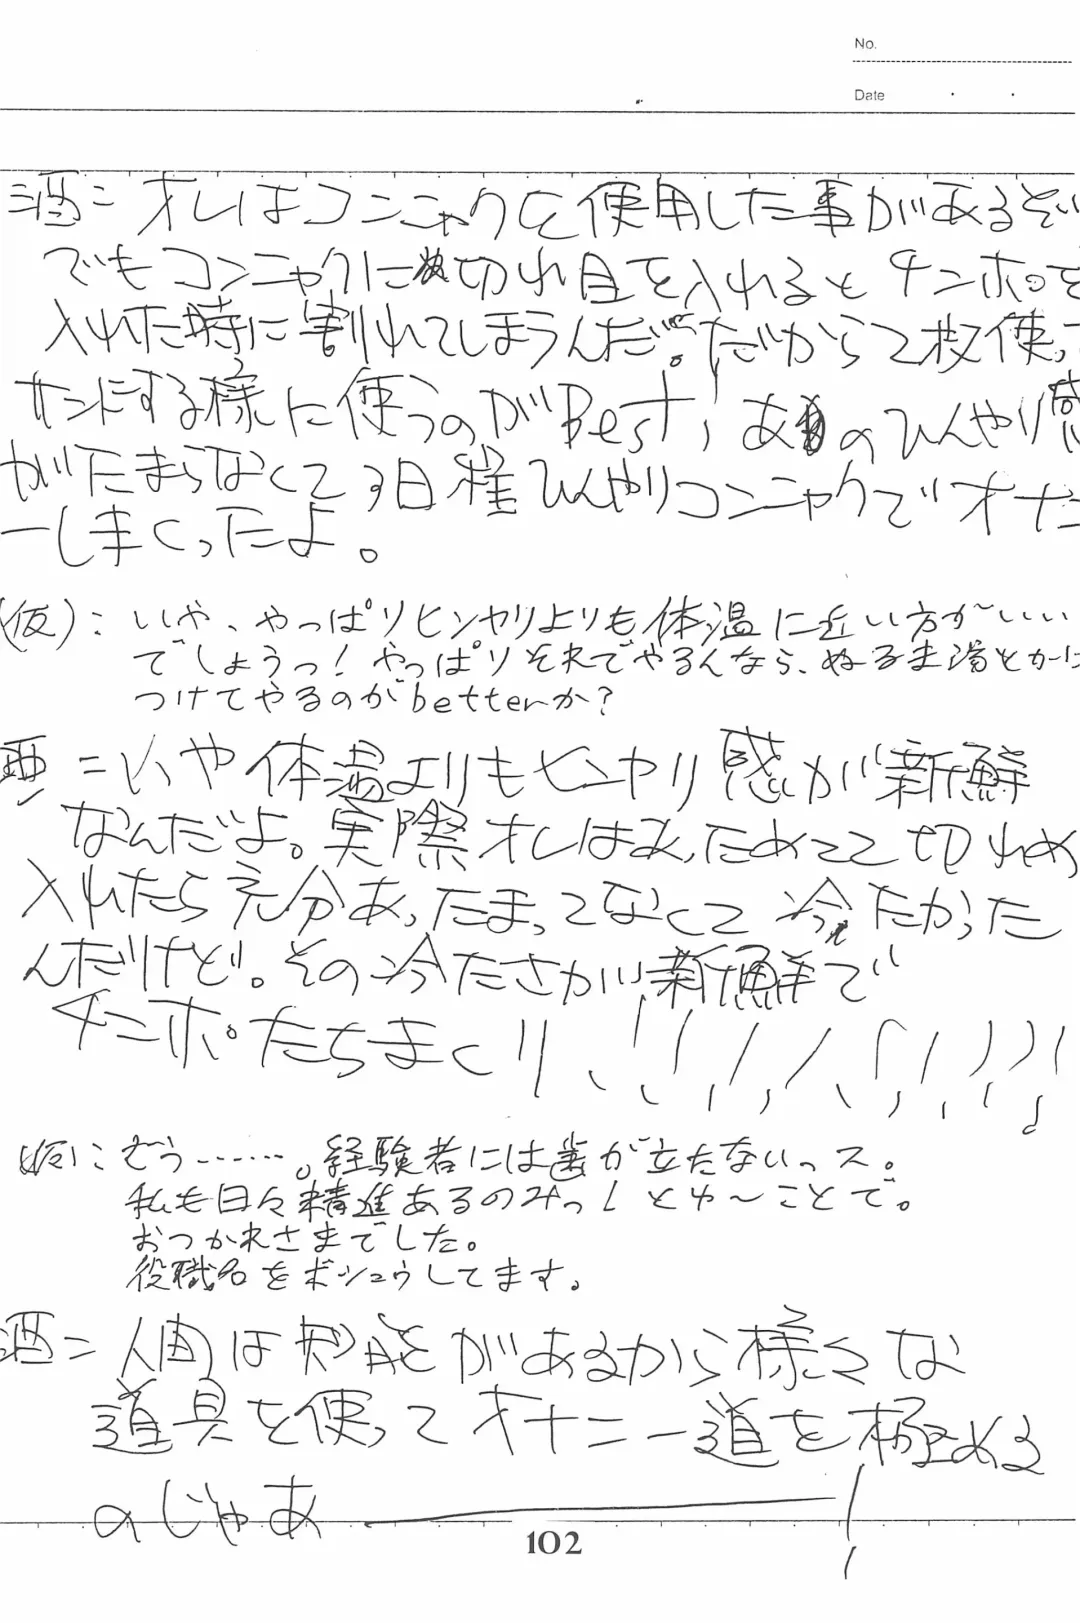 No.
Date
酒=オレはコンニャクを使用した事があるぞい
でもコンニャクに切れ目を入れるとチンポを
入れた時に割れてしまうんだ。だから2枚使って
サンドする様に使うのがBest!あのひんやり感
がたまらなくて3日程ひんやりコンニャクでオナニ
ーしまくったよ。
(仮):いや、やっぱりヒンヤリよりも体温に近い方がいい
でしょうっ!やっぱりそれでやるんなら、ぬるま湯とかに
つけてやるのがbetterか?
酒=いや体温よりもヒンヤリ感が新鮮
なんだよ。実際オレはあっためてて切れめ
入れたら充分あったまってなくて冷たかった
んだけど。その冷たさが新鮮で
チンポたちまくり!!!!!!!!!!
(仮):どう……。経験者には歯が立たないっス。
私も日々精進あるのみっ!とゆ〜ことで。
おつかれさまでした。
役職名をボシュウしてます。
酒=人間は知能があるから様々な
道具を使ってオナニー道を極める
のじゃあ――!
102